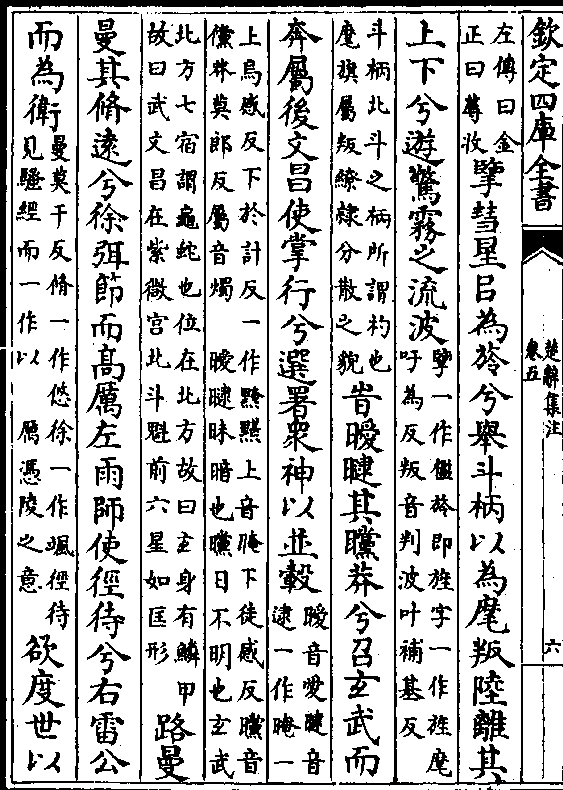 欽定四庫全書
楚辭集注
卷五
六
左傳曰金
正曰蓐收
擥彗星㠯為旍兮舉斗柄以為麾叛陸離其
上下兮遊驚霧之流波
擥一作㩜旍即旌字一作旌麾
吁為反叛音判波叶補基反
斗柄北斗之柄所謂杓也
麾旗屬叛繚隷分散之貌
旹曖曃其曭莽兮召玄武而
奔屬後文昌使掌行兮選署衆神以並轂
曖音愛曃音
逮一作晻一
上烏感反下於計反一作黤黮上音晻下徒感反曭音
儻莽莫郎反屬音燭 曖曃昧暗也曭日不明也玄武
北方七宿謂龜蛇也位在北方故曰玄身有鱗甲
故曰武文昌在紫微宫北斗魁前六星如匡形
路曼
曼其脩遠兮徐弭節而高厲左雨師使徑待兮右雷公
而為衛
曼莫干反脩一作悠徐一作颯徑待
見騷經而一作以 厲憑陵之意
欲度世以